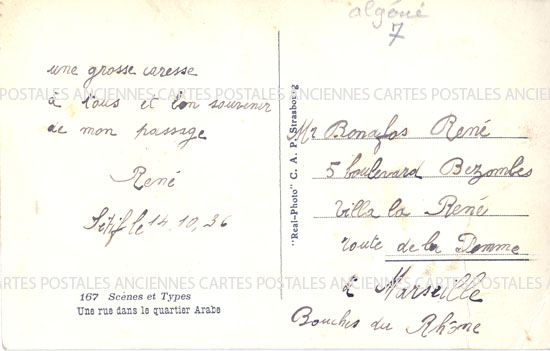 algérie
7
une grosse caresse
à tous et bon souvenir
de mon passage
René
Sétif le 14.10.36
167 Scènes et Types
Une rue dans le quartier Arabe
"Real-Photo" C. A. P. Strasbourg
Mr Bonafos René
5 boulevard Bezombes
Villa la René
route de la Pomme
à Marseille
Bouches du Rhône
CARTES POSTALES ANCIENNES CARTES POSTALES ANCIENNES
ANCIENNES CARTES POSTALES ANCIENNES CARTES POSTALES